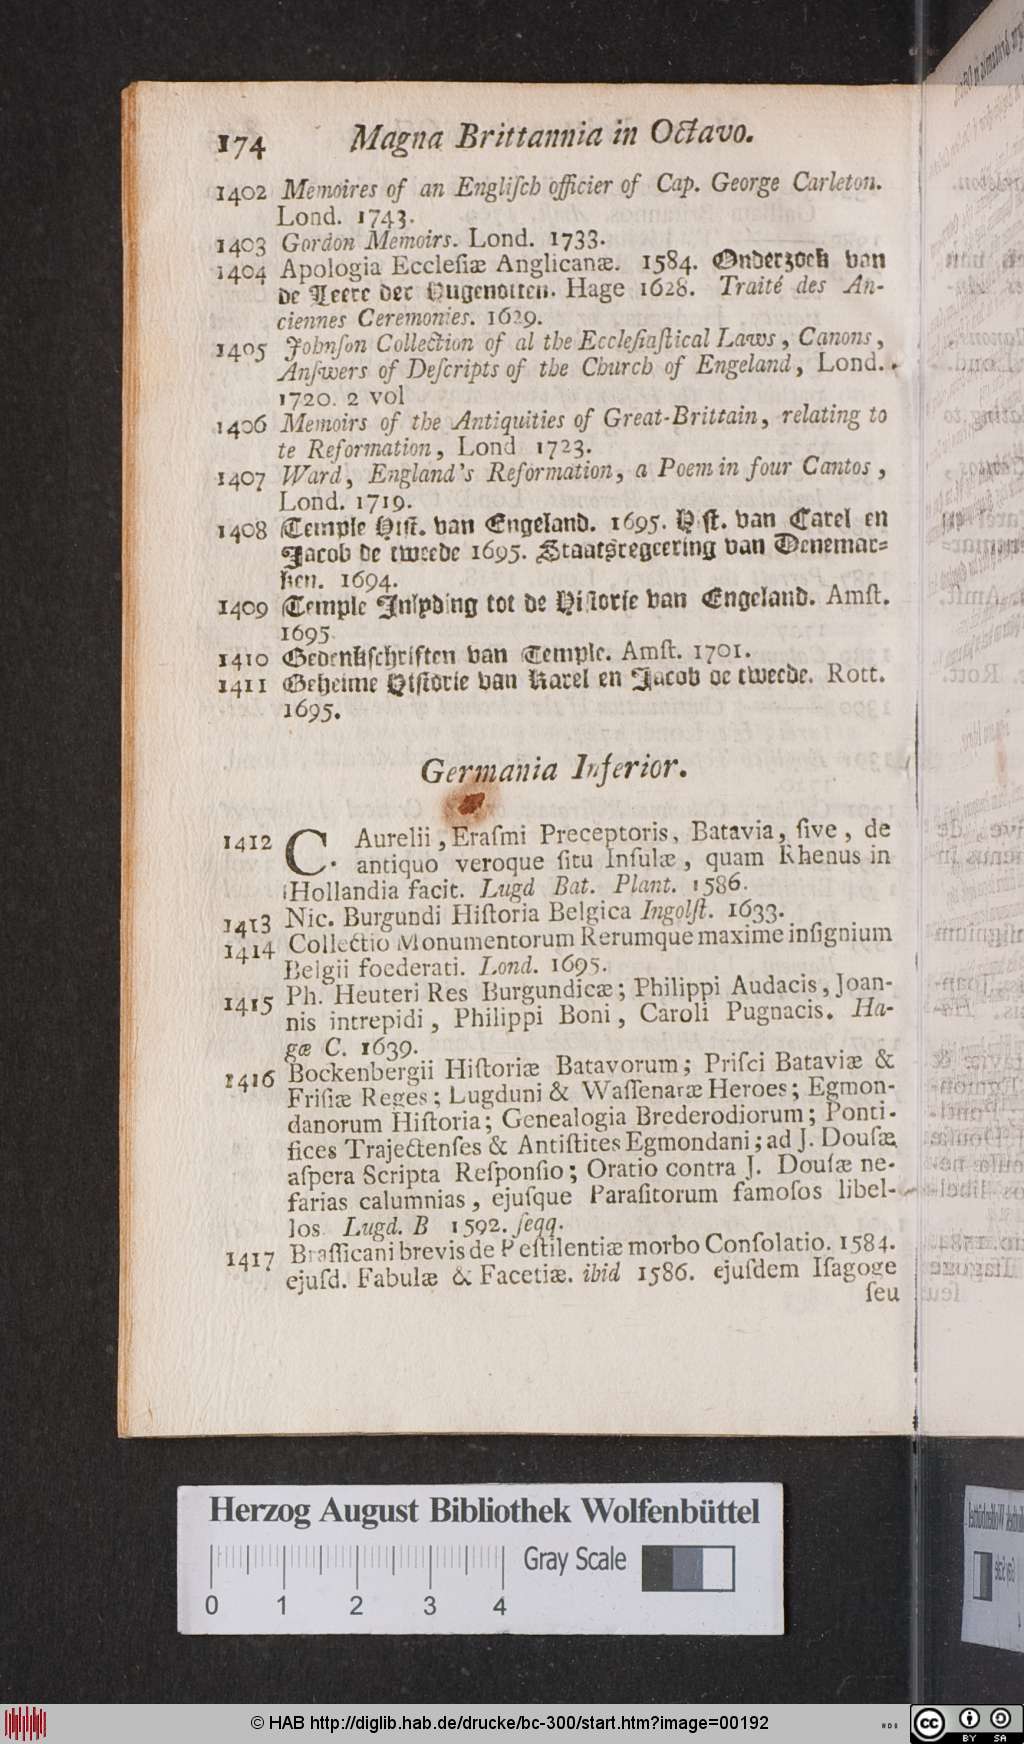 174 Magna Brittannia in Octavo.
1402 Memoires of an Engliſch officier of Cap. George Carleton.
Lond. 1743.
1403 Gordon Memoirs. Lond. 1733.
1404 Apologia Eccleſiæ Anglicanæ. 1584. Onderzoek van
de Leere der Hugenotten. Hage 1628. Traité des An-
ciennes Ceremonies. 1629.
1405 Johnſon Collection of al the Eccleſiaſtical Laws, Canons,
Anſwers of Deſcripts of the Church of Engeland, Lond.
1720. 2 vol
1406 Memoirs of the Antiquities of Great-Brittain, relating to
te Reformation, Lond 1723.
1407 Ward, England's Reformation, a Poem in four Cantos,
Lond. 1719.
1408 Temple Hiſt. van Engeland. 1695. H ſt. van Carel en
Jacob de tweede 1695. Staatsregeering van Denemar-
ken. 1694.
1409 Temple Inlyding tot de Hiſtorie van Engeland. Amſt.
1695.
1410 Gedenkſchriften van Temple. Amſt. 1701.
1411 Geheime Hiſtorie van Karel en Jacob de tweede. Rott.
1695.
Germania Inferior.
1412 C. Aurelii, Eraſmi Preceptoris, Batavia, ſive, de
antiquo veroque ſitu Inſulæ, quam Rhenus in
Hollandia facit. Lugd Bat. Plant. 1586.
1413 Nic. Burgundi Hiſtoria Belgica Ingolſt. 1633.
1414 Collectio Monumentorum Rerumque maxime inſignium
Belgii foederati. Lond. 1695.
1415 Ph. Heuteri Res Burgundicæ; Philippi Audacis, Joan-
nis intrepidi, Philippi Boni, Caroli Pugnacis. Ha-
gæ C. 1639.
1416 Bockenbergii Hiſtoriæ Batavorum; Priſci Bataviæ &
Friſiæ Reges; Lugduni & Waſſenaræ Heroes; Egmon-
danorum Hiſtoria; Genealogia Brederodiorum; Ponti-
fices Trajectenſes & Antiſtites Egmondani; ad J. Douſæ
aſpera Scripta Reſponſio; Oratio contra J. Douſæ ne-
farias calumnias, ejuſque Paraſitorum famoſos libel-
los. Lugd. B 1592. ſeqq.
1417 Braſſicani brevis de Peſtilentiæ morbo Conſolatio. 1584.
ejuſd. Fabulæ & Facetiæ. ibid 1586. ejuſdem Iſagoge
ſeu
Herzog August Bibliothek Wolfenbüttel
Gray Scale
0 1 2 3 4
© HAB http://diglib.hab.de/drucke/bc-300/start.htm?image=00192
cc BY SA